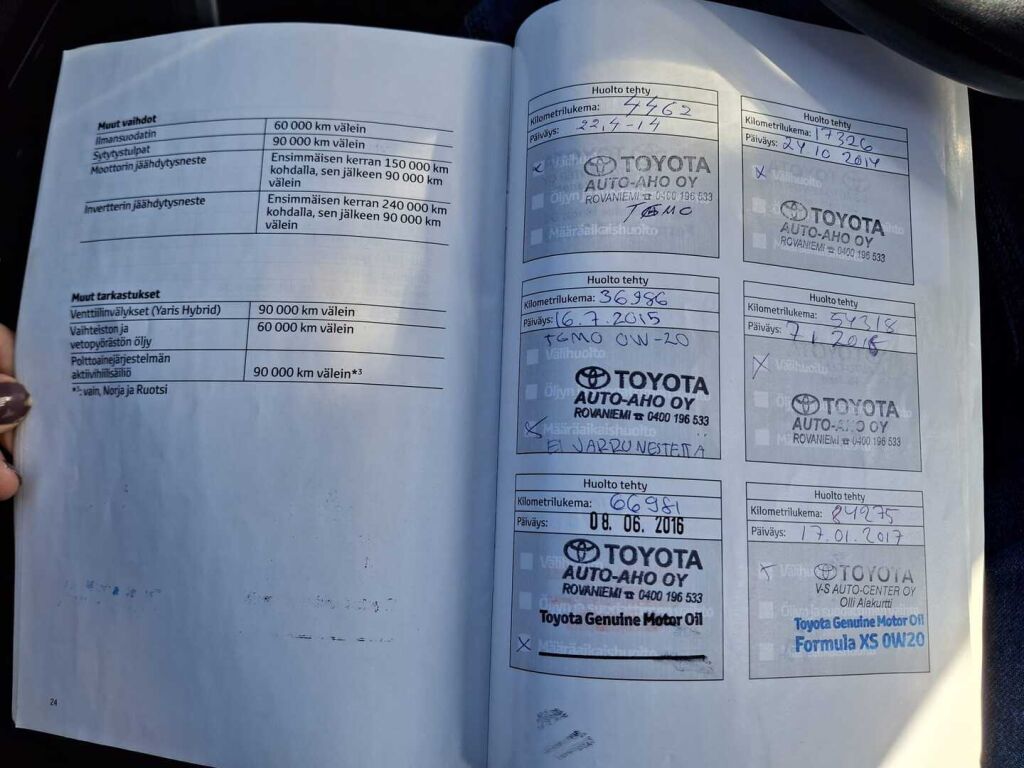 Muut vaihdot
Ilmansuodatin 60 000 km välein
Sytytystulpat 90 000 km välein
Moottorin jäähdytysneste Ensimmäisen kerran 150 000 km
kohdalla, sen jälkeen 90 000 km
välein
Invertterin jäähdytysneste Ensimmäisen kerran 240 000 km
kohdalla, sen jälkeen 90 000 km
välein
Muut tarkastukset
Venttiilinvälykset (Yaris Hybrid) 90 000 km välein
Vaihteiston ja 60 000 km välein
vetopyörästön öljy
Polttoainejärjestelmän
aktiivihiilisäiliö 90 000 km välein*3
*3: vain, Norja ja Ruotsi
24
Huolto tehty
Kilometrilukema: 4462
Päiväys: 22.4-14
TOYOTA
AUTO-AHO OY
Öljyn
ROVANIEMI ☎ 0400 196 533
TGMO
Määräaikaishuolto
Huolto tehty
Kilometrilukema: 17326
Päiväys: 24.10 2014
x Välihuolto
TOYOTA
AUTO-AHO OY
ROVANIEMI ☎ 0400 196 533
Huolto tehty
Kilometrilukema: 36986
Päiväys: 16.7.2015
TGMO 0W-20
Välihuolto
TOYOTA
AUTO-AHO OY
ROVANIEMI ☎ 0400 196 533
x Määräaikaishuolto
EI JARRUNESTETTÄ
Huolto tehty
Kilometrilukema: 54318
Päiväys: 7.1.2016
x Välihuolto
TOYOTA
AUTO-AHO OY
ROVANIEMI ☎ 0400 196 533
Huolto tehty
Kilometrilukema: 66981
Päiväys: 08. 06. 2016
TOYOTA
AUTO-AHO OY
ROVANIEMI ☎ 0400 196 533
Toyota Genuine Motor Oil
x Määräaikaishuolto
Huolto tehty
Kilometrilukema: 84275
Päiväys: 17.01.2017
TOYOTA
V-S AUTO-CENTER OY
Olli Alakurtti
Toyota Genuine Motor Oil
Formula XS 0W20